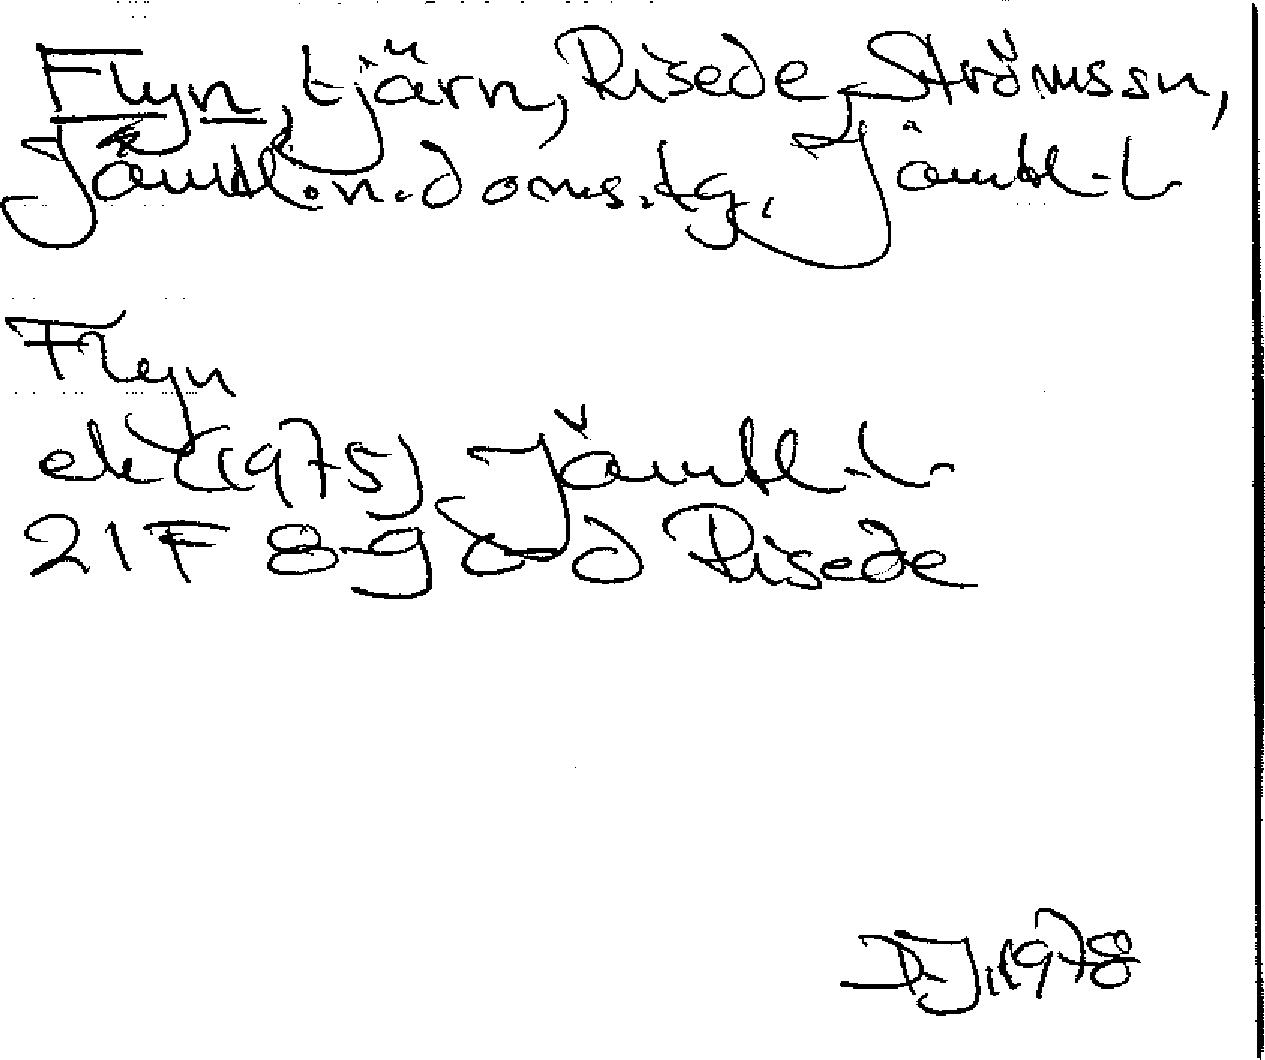 Flyn, tjärn, Risede, Strömssn,
Jämtl. n. doms. tg, Jämtl. L
Flyn
ek (1975) Jämtl. L.
21 F 8-g c-d Risede
1978